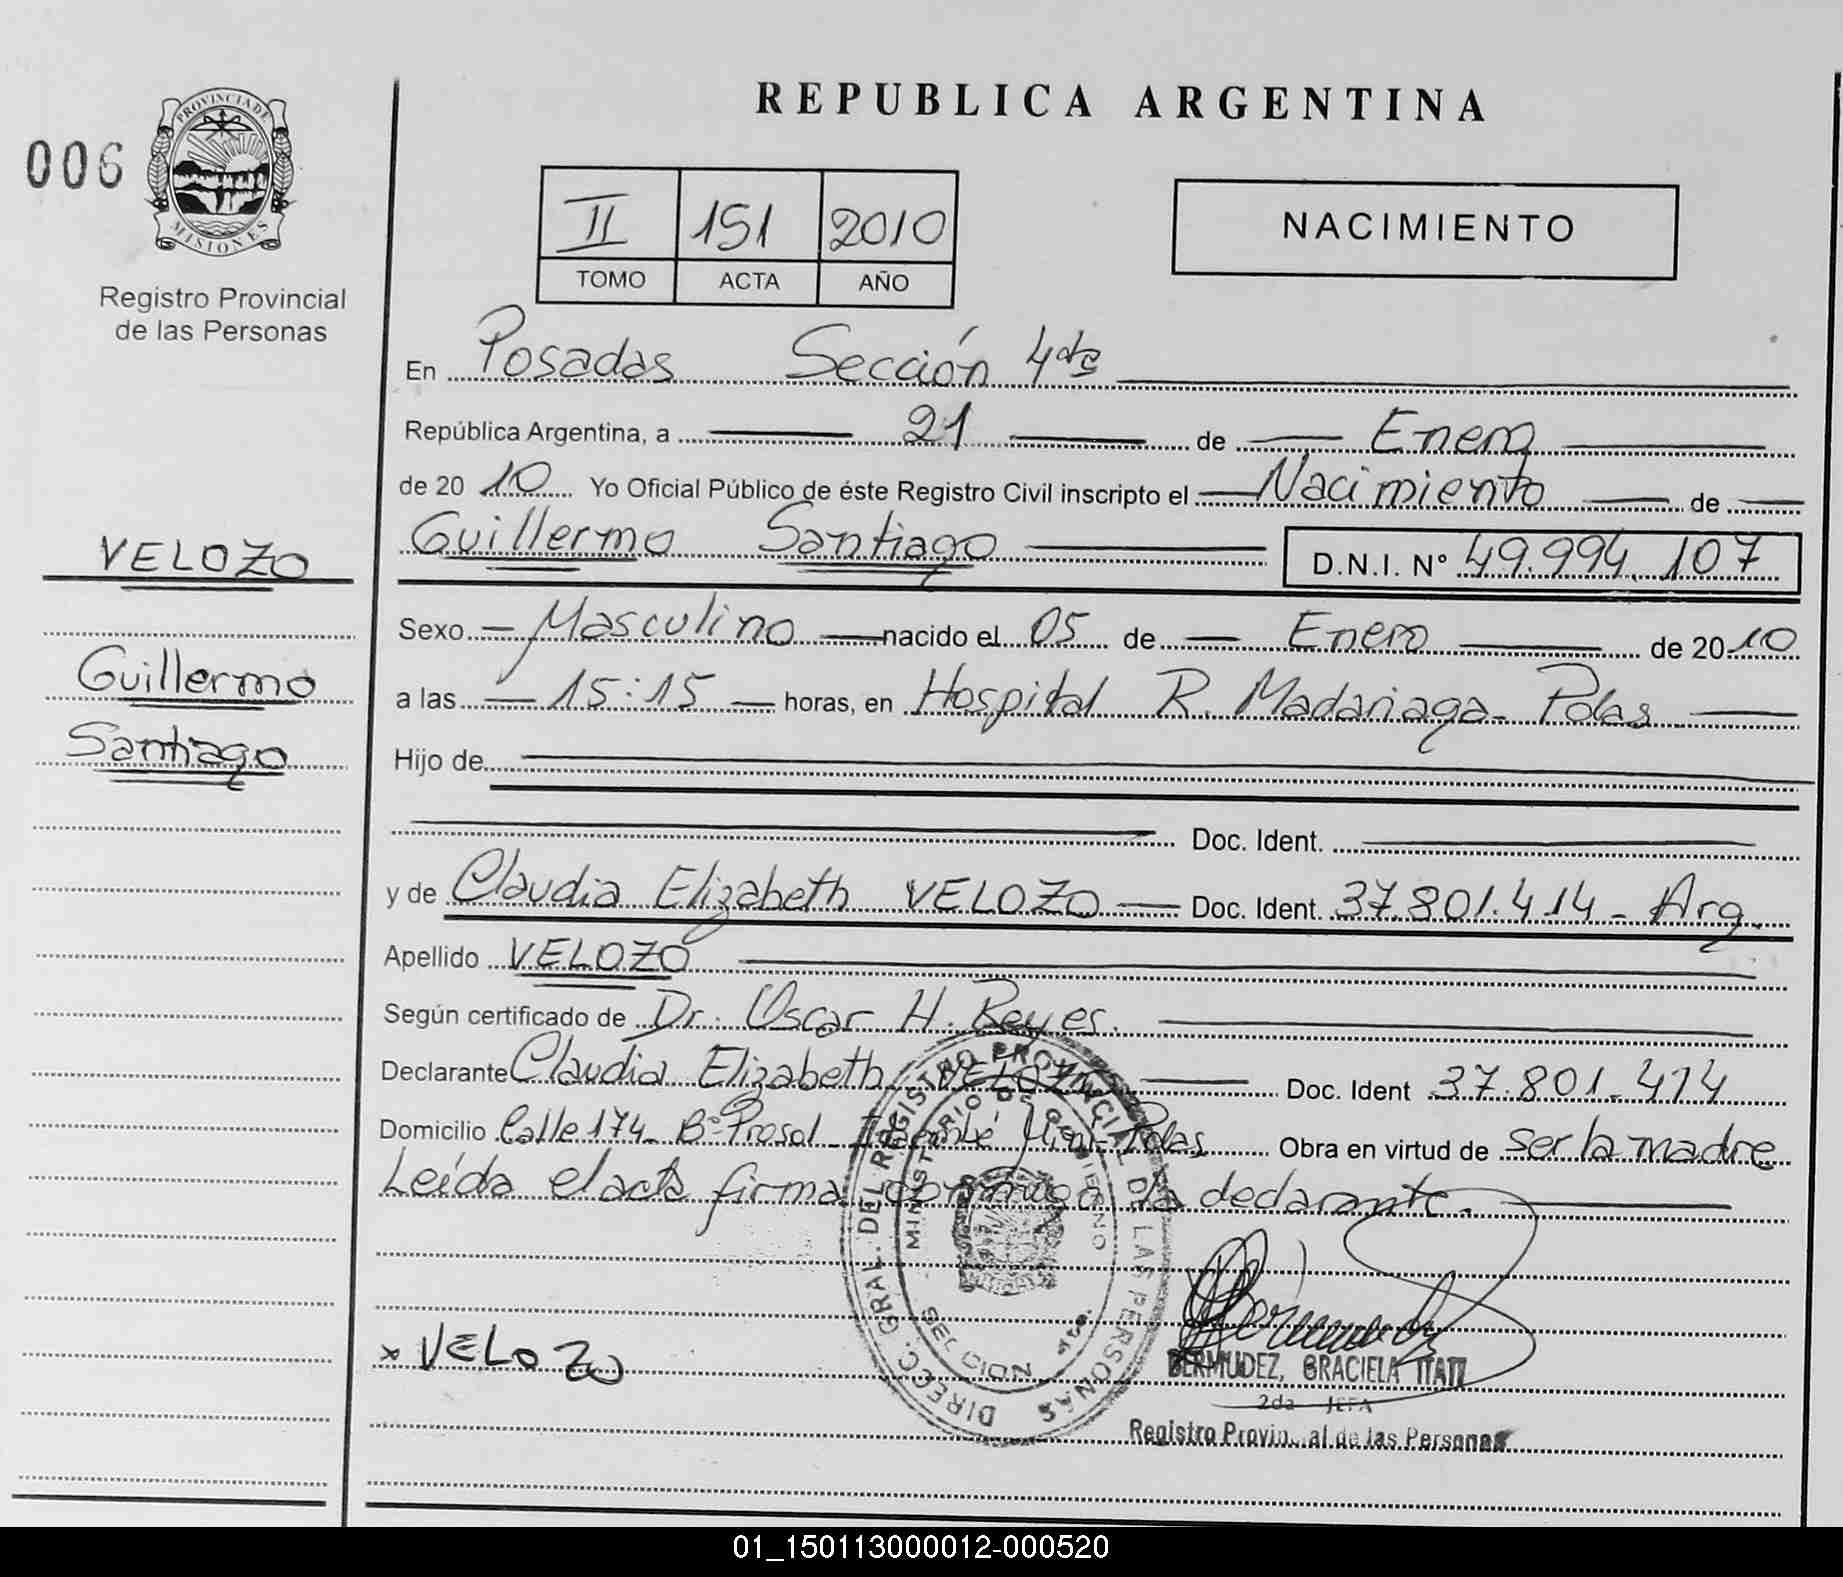 REPUBLICA ARGENTINA
006
PROVINCIA DE
MISIONES
Registro Provincial
de las Personas
II 151 2010
TOMO ACTA AÑO
NACIMIENTO
En Posadas Sección 4ta
República Argentina, a 21 de Enero
de 2010 Yo Oficial Público de éste Registro Civil inscripto el Nacimiento de
Guillermo Santiago D.N.I. Nº 49.994.107
VELOZO
Guillermo
Santiago
Sexo Masculino nacido el 05 de Enero de 2010
a las 15:15 horas, en Hospital R. Madariaga - Pdas
Hijo de
Doc. Ident.
y de Claudia Elizabeth VELOZO Doc. Ident. 37.801.414 - Arg.
Apellido VELOZO
Según certificado de Dr. Oscar H. Reyes.
Declarante Claudia Elizabeth VELOZO Doc. Ident 37.801.414
Domicilio Calle 174 - Bº Prosol - Itaembé Miní - Pdas Obra en virtud de ser la madre
Leída el acta firma conmigo la declarante.
DIRECC. GRAL. DEL REGISTRO PROVINCIAL DE LAS PERSONAS
MINISTERIO DE GOBIERNO
SECCION 4ta.
x VELOZO
BERMUDEZ, GRACIELA ITATI
2da JEFA
Registro Provincial de las Personas
01_150113000012-000520